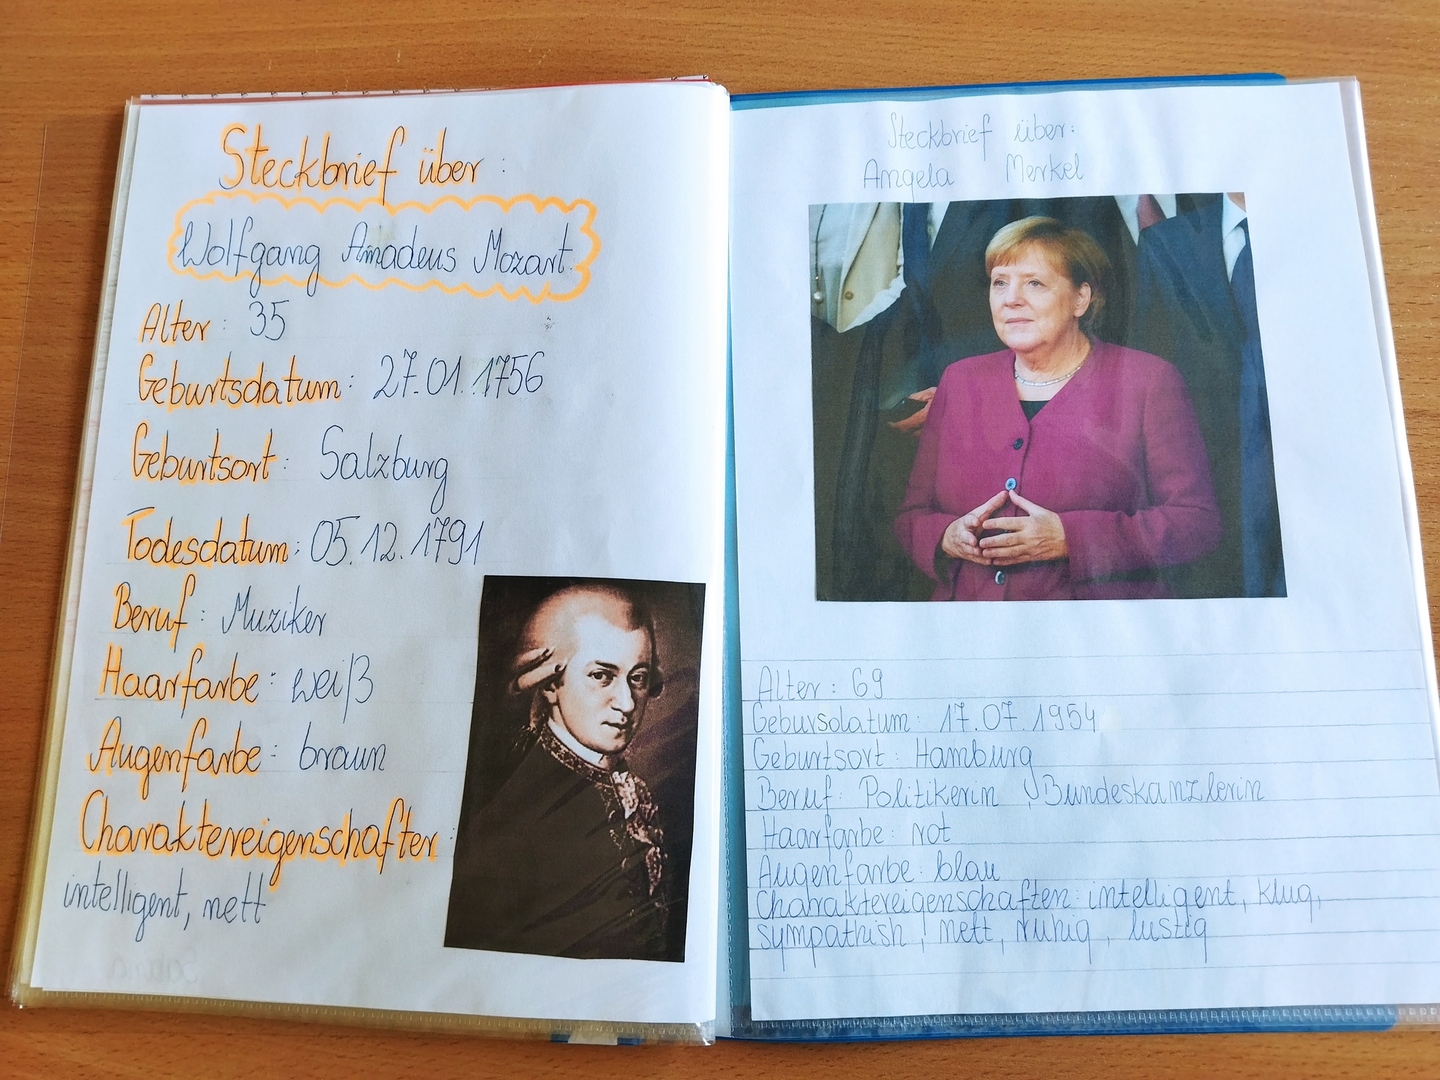 Steckbrief über:
Wolfgang Amadeus Mozart
Alter: 35
Geburtsdatum: 27.01.1756
Geburtsort: Salzburg
Todesdatum: 05.12.1791
Beruf: Muziker
Haarfarbe: weiß
Augenfarbe: braun
Charaktereigenschaften:
intelligent, nett
Steckbrief über:
Angela Merkel
Alter: 69
GeburSdatum: 17.07.1954
Geburtsort: Hamburg
Beruf: Politikerin, Bundeskanzlerin
Haarfarbe: rot
Augenfarbe: blau
Charaktereigenschaften: intelligent, klug,
sympathish, nett, ruhig, lustig